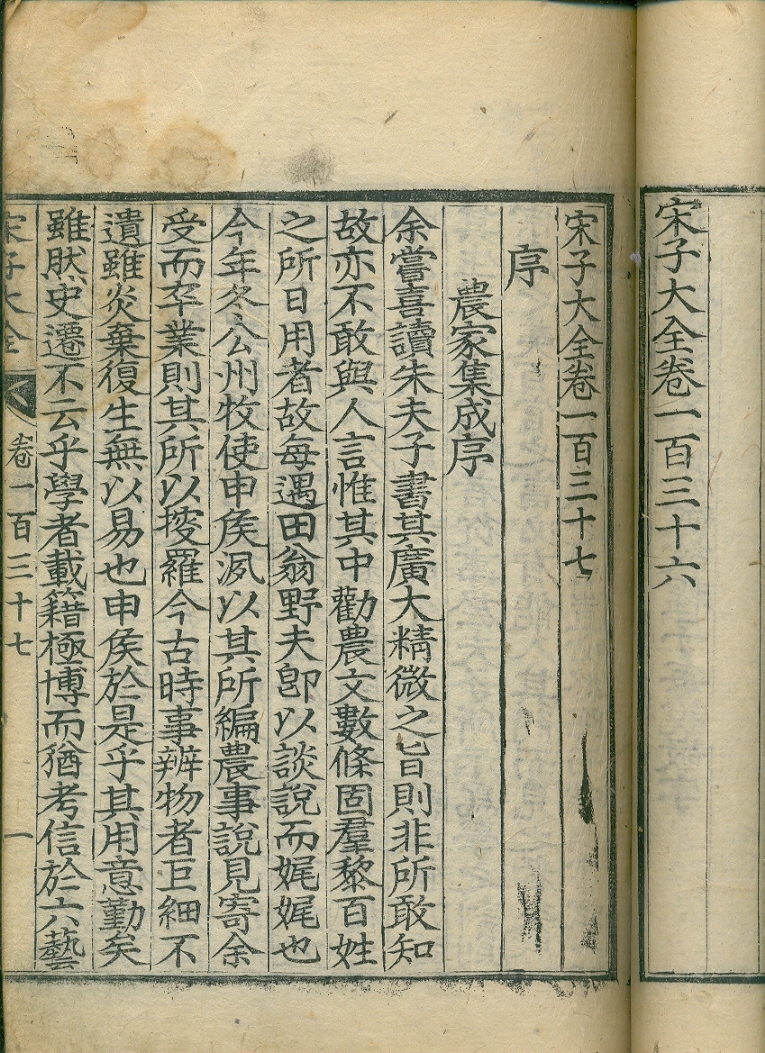 宋子大全卷一百三十六
宋子大全卷一百三十七
序
農家集成序
余嘗喜讀朱夫子書其廣大精微之旨則非所敢知
故亦不敢與人言惟其中勸農文數條固羣黎百姓
之所日用者故每遇田翁野夫卽以談說而娓娓也
今年冬公州牧使申矦洬以其所編農事說見寄余
受而卒業則其所以搜羅今古時事辨物者巨細不
遺雖炎棄復生無以易也申矦於是乎其用意勤矣
雖肰史遷不云乎學者載籍極博而猶考信於六藝
宋子大全 卷一百三十七 一